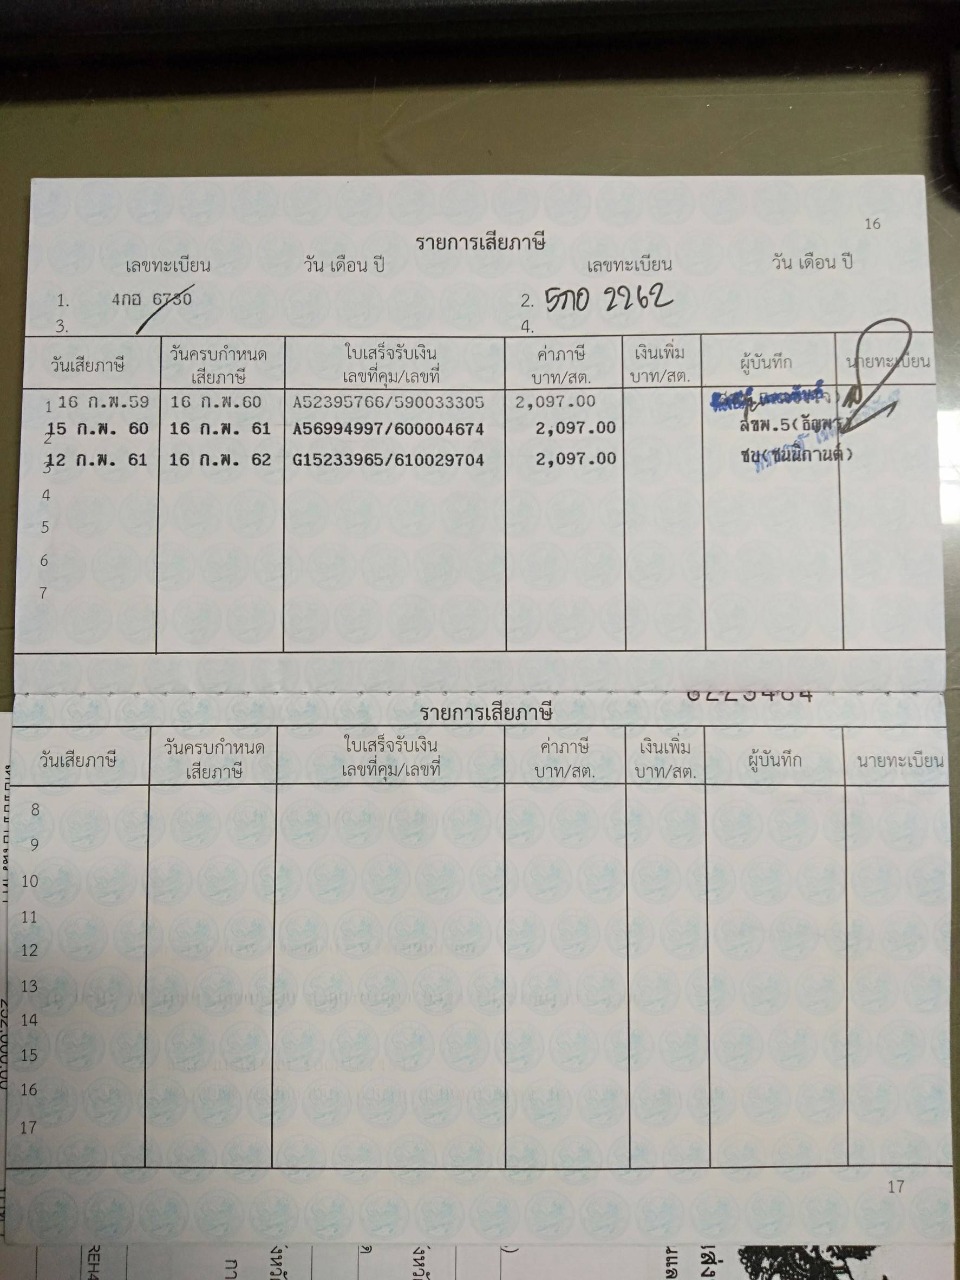 16
รายการเสียภาษี
เลขทะเบียน วัน เดือน ปี เลขทะเบียน วัน เดือน ปี
1. 4กอ 6730 2. 5กอ 2262
3. 4.
วันเสียภาษี วันครบกำหนด เสียภาษี ใบเสร็จรับเงิน เลขที่คุม/เลขที่ ค่าภาษี บาท/สต. เงินเพิ่ม บาท/สต. ผู้บันทึก นายทะเบียน
1 16 ก.พ.59 16 ก.พ.60 A52395766/590033305 2,097.00
2 15 ก.พ. 60 16 ก.พ. 61 A56994997/600004674 2,097.00 ลขพ.5(ธัญพร)
3 12 ก.พ. 61 16 ก.พ. 62 G15233965/610029704 2,097.00
4
5
6
7
รายการเสียภาษี
วันเสียภาษี วันครบกำหนด เสียภาษี ใบเสร็จรับเงิน เลขที่คุม/เลขที่ ค่าภาษี บาท/สต. เงินเพิ่ม บาท/สต. ผู้บันทึก นายทะเบียน
8
9
10
11
12
13
14
15
16
17
17